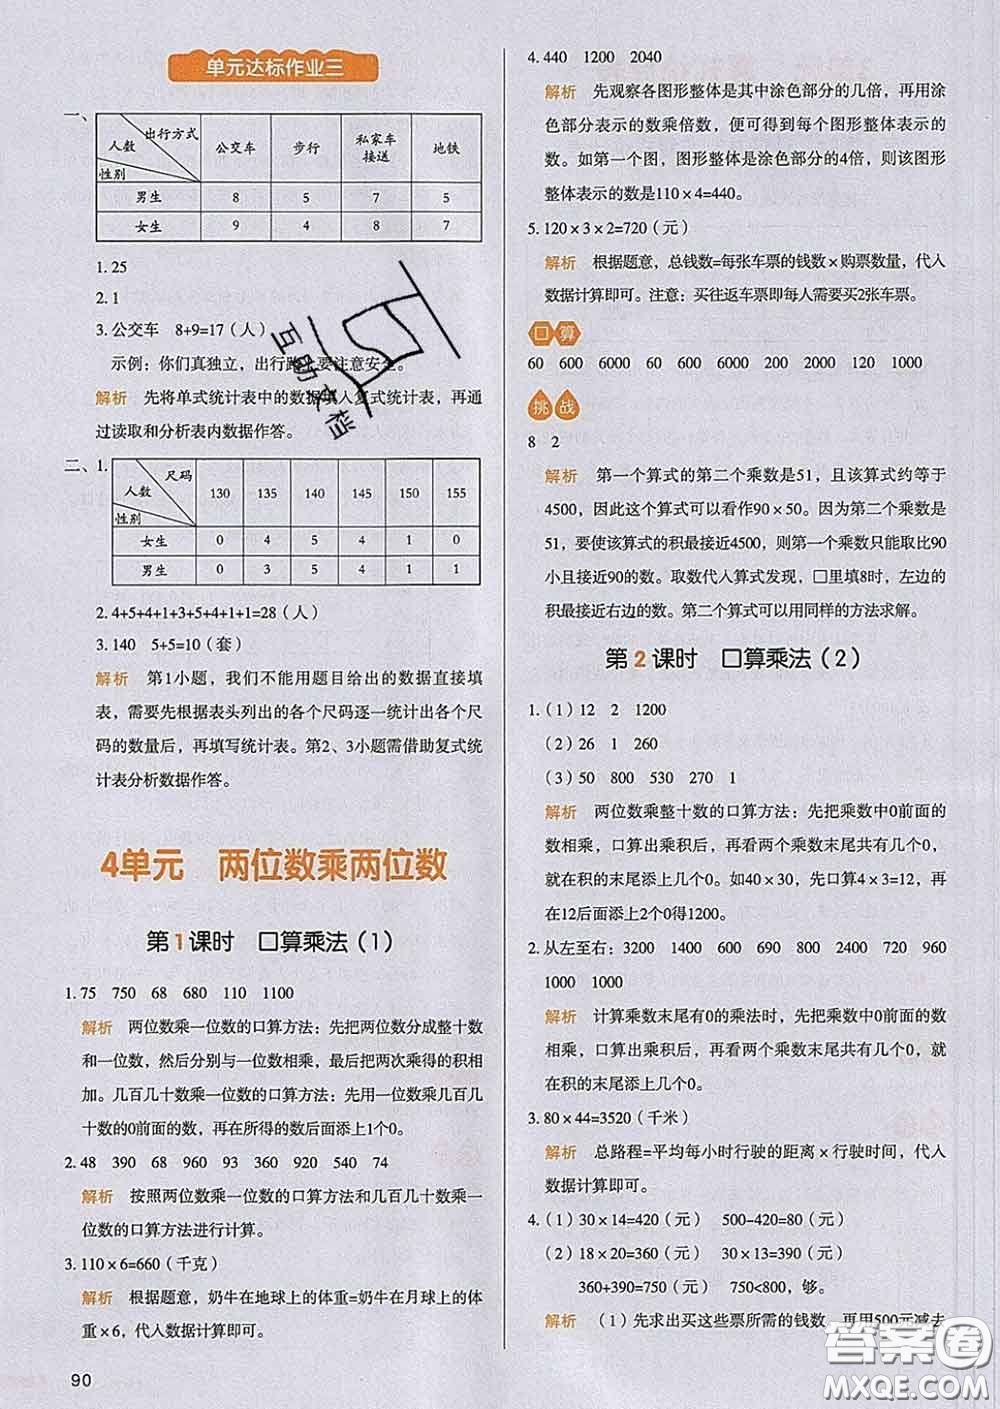 单元达标作业三
一、
出行方式
人数
性别
公交车 步行 私家车接送 地铁
男生 8 5 7 5
女生 9 4 8 7
1. 25
2. 1
3. 公交车 8+9=17（人）
示例：你们真独立，出行路上要注意安全。
解析 先将单式统计表中的数据填入复式统计表，再通
过读取和分析表内数据作答。
二、1.
尺码
人数
性别
130 135 140 145 150 155
女生 0 4 5 4 1 0
男生 0 3 5 4 1 1
2. 4+5+4+1+3+5+4+1+1=28（人）
3. 140 5+5=10（套）
解析 第1小题，我们不能用题目给出的数据直接填
表，需要先根据表头列出的各个尺码逐一统计出各个尺
码的数量后，再填写统计表。第2、3小题需借助复式统
计表分析数据作答。
4单元 两位数乘两位数
第1课时 口算乘法（1）
1. 75 750 68 680 110 1100
解析 两位数乘一位数的口算方法：先把两位数分成整十数
和一位数，然后分别与一位数相乘，最后把两次乘得的积相
加。几百几十数乘一位数的口算方法：先用一位数乘几百几
十数的0前面的数，再在所得的数后面添上1个0。
2. 48 390 68 960 93 360 920 540 74
解析 按照两位数乘一位数的口算方法和几百几十数乘一
位数的口算方法进行计算。
3. 110×6=660（千克）
解析 根据题意，奶牛在地球上的体重=奶牛在月球上的体
重×6，代入数据计算即可。
90
4. 440 1200 2040
解析 先观察各图形整体是其中涂色部分的几倍，再用涂
色部分表示的数乘倍数，便可得到每个图形整体表示的
数。如第一个图，图形整体是涂色部分的4倍，则该图形
整体表示的数是110×4=440。
5. 120×3×2=720（元）
解析 根据题意，总钱数=每张车票的钱数×购票数量，代入
数据计算即可。注意：买往返车票即每人需要买2张车票。
口算
60 600 6000 60 600 6000 200 2000 120 1000
挑战
8 2
解析 第一个算式的第二个乘数是51，且该算式约等于
4500，因此这个算式可以看作90×50。因为第二个乘数是
51，要使该算式的积最接近4500，则第一个乘数只能取比90
小且接近90的数。取数代入算式发现，□里填8时，左边的
积最接近右边的数。第二个算式可以用同样的方法求解。
第2课时 口算乘法（2）
1.（1）12 2 1200
（2）26 1 260
（3）50 800 530 270 1
解析 两位数乘整十数的口算方法：先把乘数中0前面的
数相乘，口算出乘积后，再看两个乘数末尾共有几个0，
就在积的末尾添上几个0。如40×30，先口算4×3=12，再
在12后面添上2个0得1200。
2. 从左至右：3200 1400 600 690 800 2400 720 960
1000 1000
解析 计算乘数末尾有0的乘法时，先把乘数中0前面的数
相乘，口算出乘积后，再看两个乘数末尾共有几个0，就
在积的末尾添上几个0。
3. 80×44=3520（千米）
解析 总路程=平均每小时行驶的距离×行驶时间，代入
数据计算即可。
4.（1）30×14=420（元） 500-420=80（元）
（2）18×20=360（元） 30×13=390（元）
360+390=750（元） 750<800，够。
解析 （1）先求出买这些票所需的钱数，再用500元减去
互助文档
答案圈
MXQE.COM